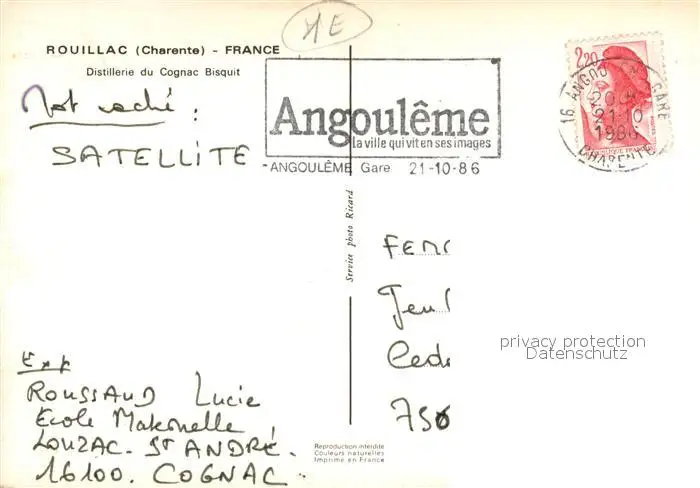 1E
ROUILLAC (Charente) - FRANCE
Distillerie du Cognac Bisquit
Mot caché :
SATELLITE
Angoulême
la ville qui vit en ses images
ANGOULÊME Gare 21-10-86
2,20
16 ANGOU GARE
21-10
1986
CHARENTE
Service photo Ricard
FEM
Jeu
Cede
750
privacy protection
Datenschutz
Exp
ROUSSAUD Lucie
Ecole Maternelle
LOUZAC. ST ANDRÉ.
16100. COGNAC
Reproduction interdite
Couleurs naturelles
Imprimé en France